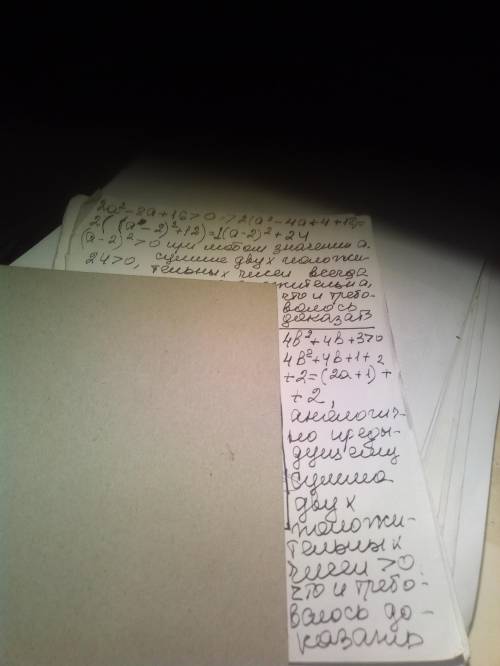 2a²-8a+16>0 → 2(a²-4a+4+12)=
2((a-2)²+12)=2(a-2)²+24
(a-2)²>0 при любом значении а.
24>0, сумме двух положи-
тельных чисел всегда
положительна,
что и требо-
валось
доказать
4b²+4b+3>0
4b²+4b+1+2
+2=(2a+1)+
+2,
аналогич-
но преды-
дущему
сумма
двух
положи-
тельных
чисел >0.
что и требо-
валось до-
казать